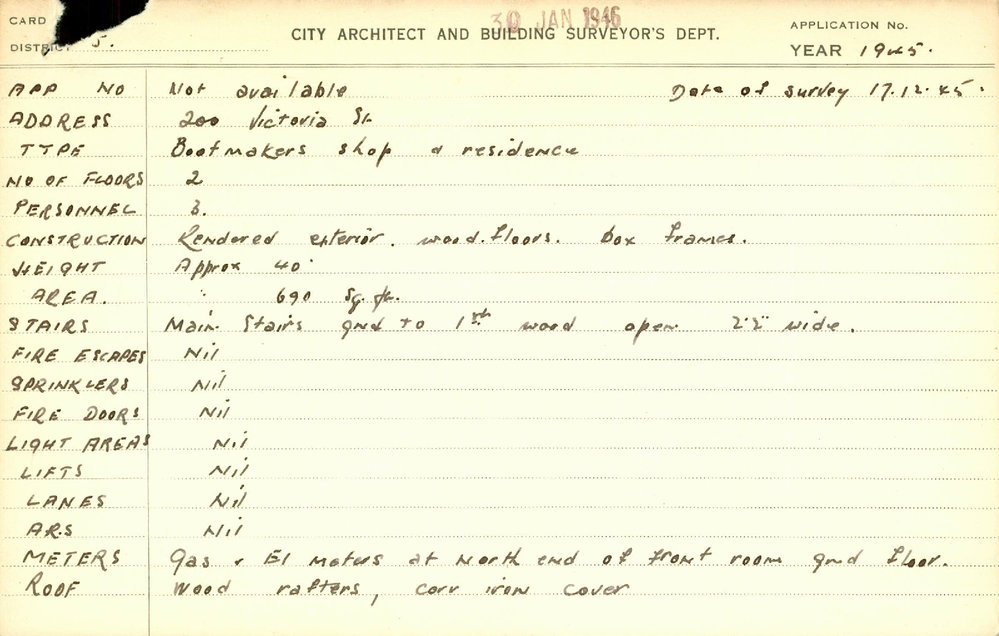 CARD
30 JAN 1946
APPLICATION No.
CITY ARCHITECT AND BUILDING SURVEYOR'S DEPT.
DISTRICT 5.
YEAR 1945.
APP NO Not available Date of survey 17.12.45.
ADDRESS 200 Victoria St
TYPE Bootmakers shop & residence
NO OF FLOORS 2
PERSONNEL 3.
CONSTRUCTION Rendered exterior. wood.floors. box frames.
HEIGHT Approx 40'
AREA. " 690 Sq. ft.
STAIRS Main Stairs gnd to 1st wood open 2'2" wide.
FIRE ESCAPES Nil
SPRINKLERS Nil
FIRE DOORS Nil
LIGHT AREAS Nil
LIFTS Nil
LANES Nil
ARS Nil
METERS Gas & El meters at North end of front room gnd floor.
ROOF Wood rafters, corr iron cover